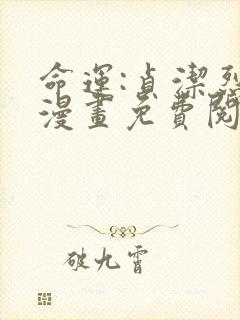 命運:貞潔烈
漫畫免費閱
破九霄